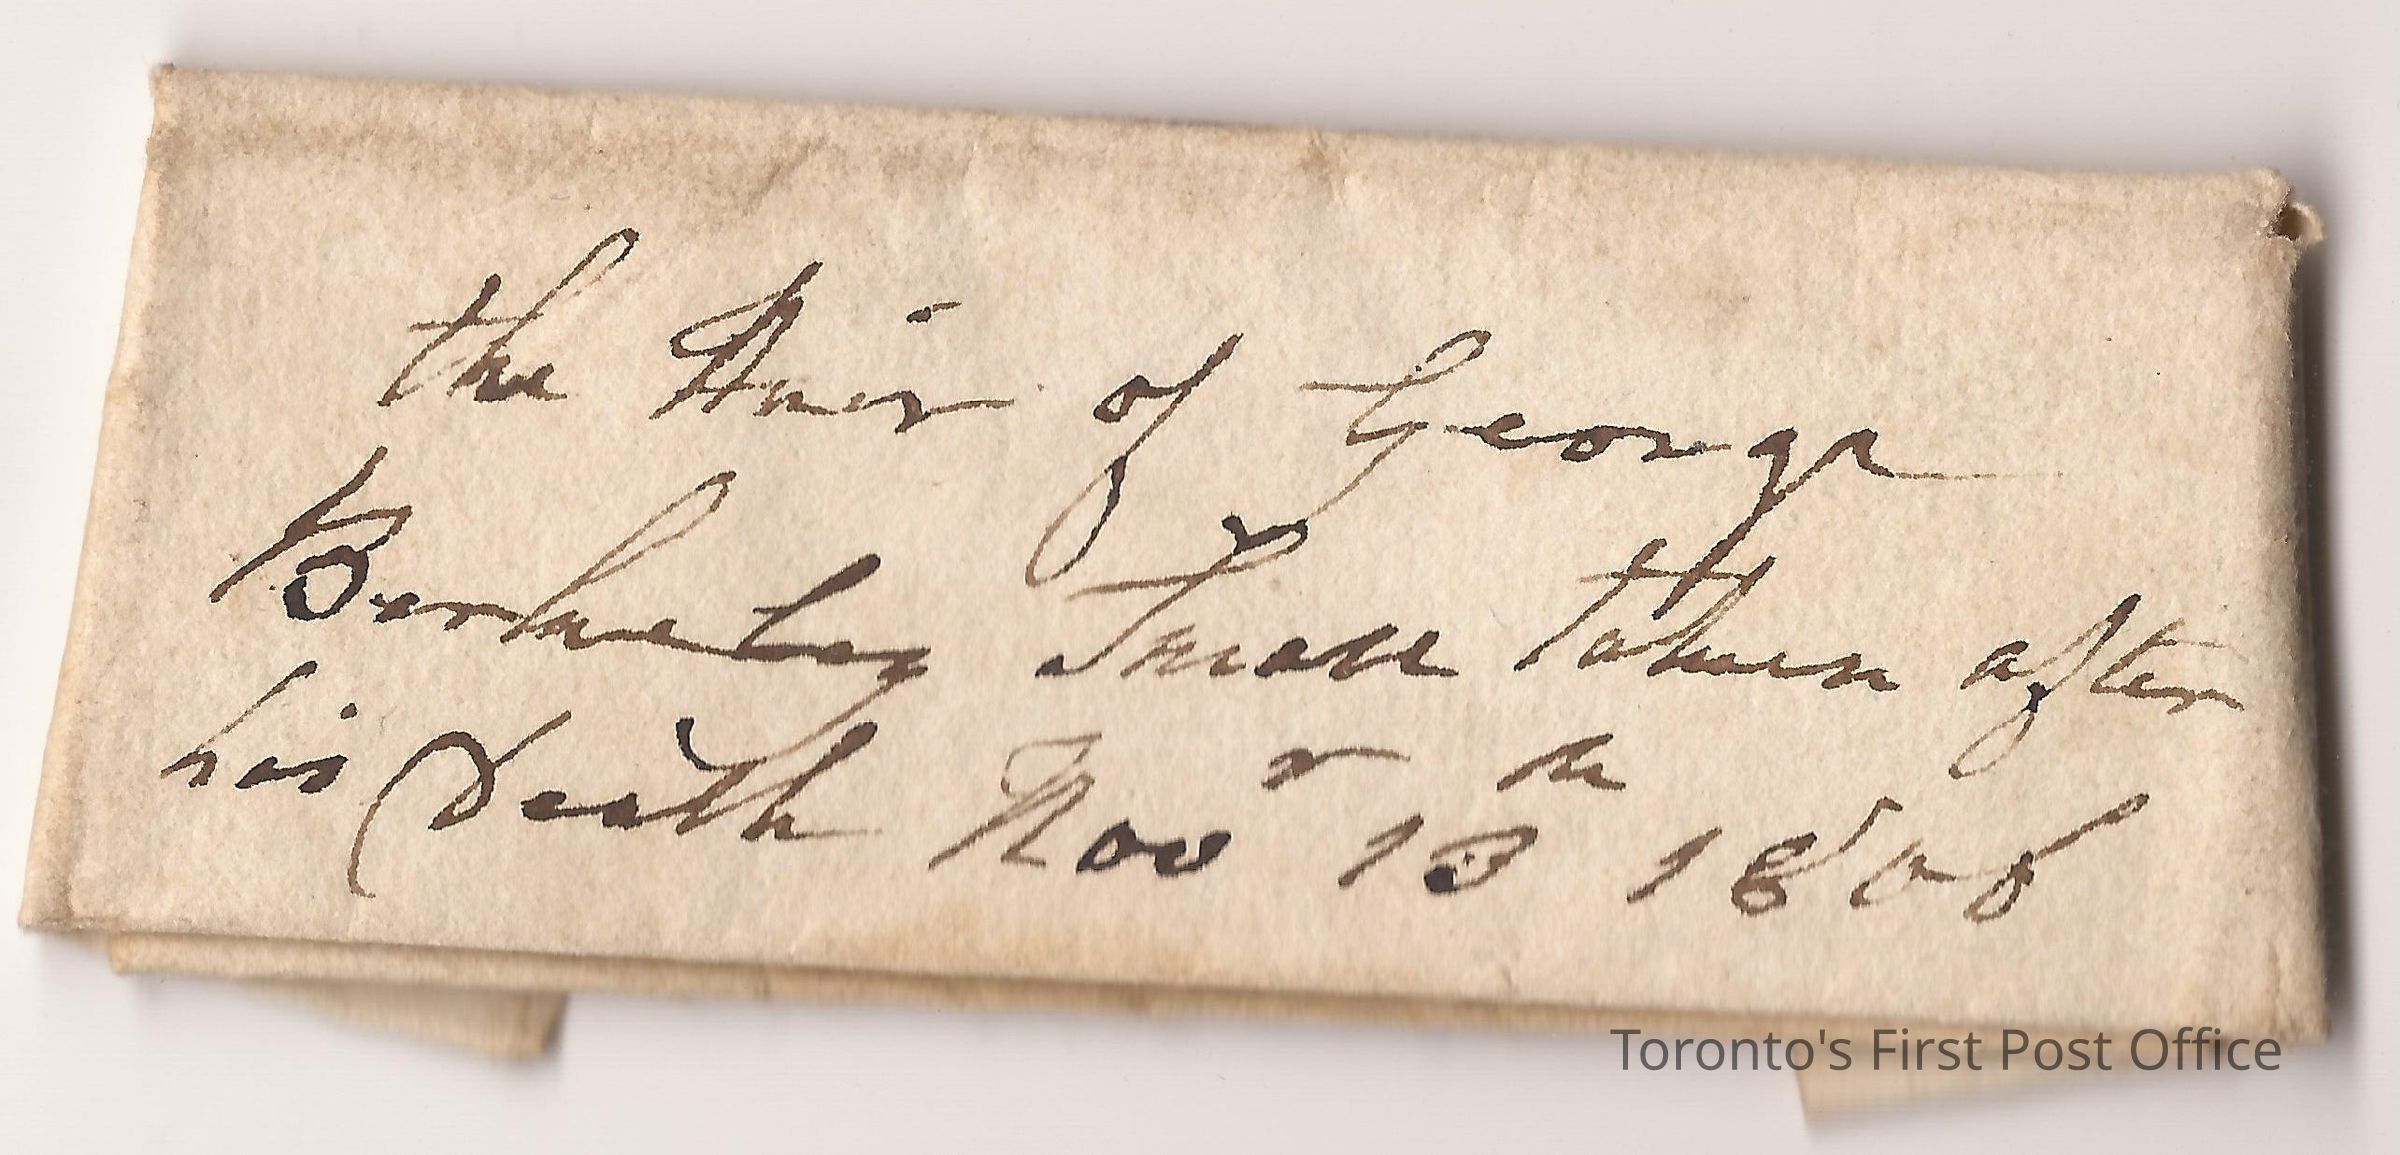 the Hair of George
Berkeley Small taken after
his Death Novr 13th 1806
Toronto's First Post Office